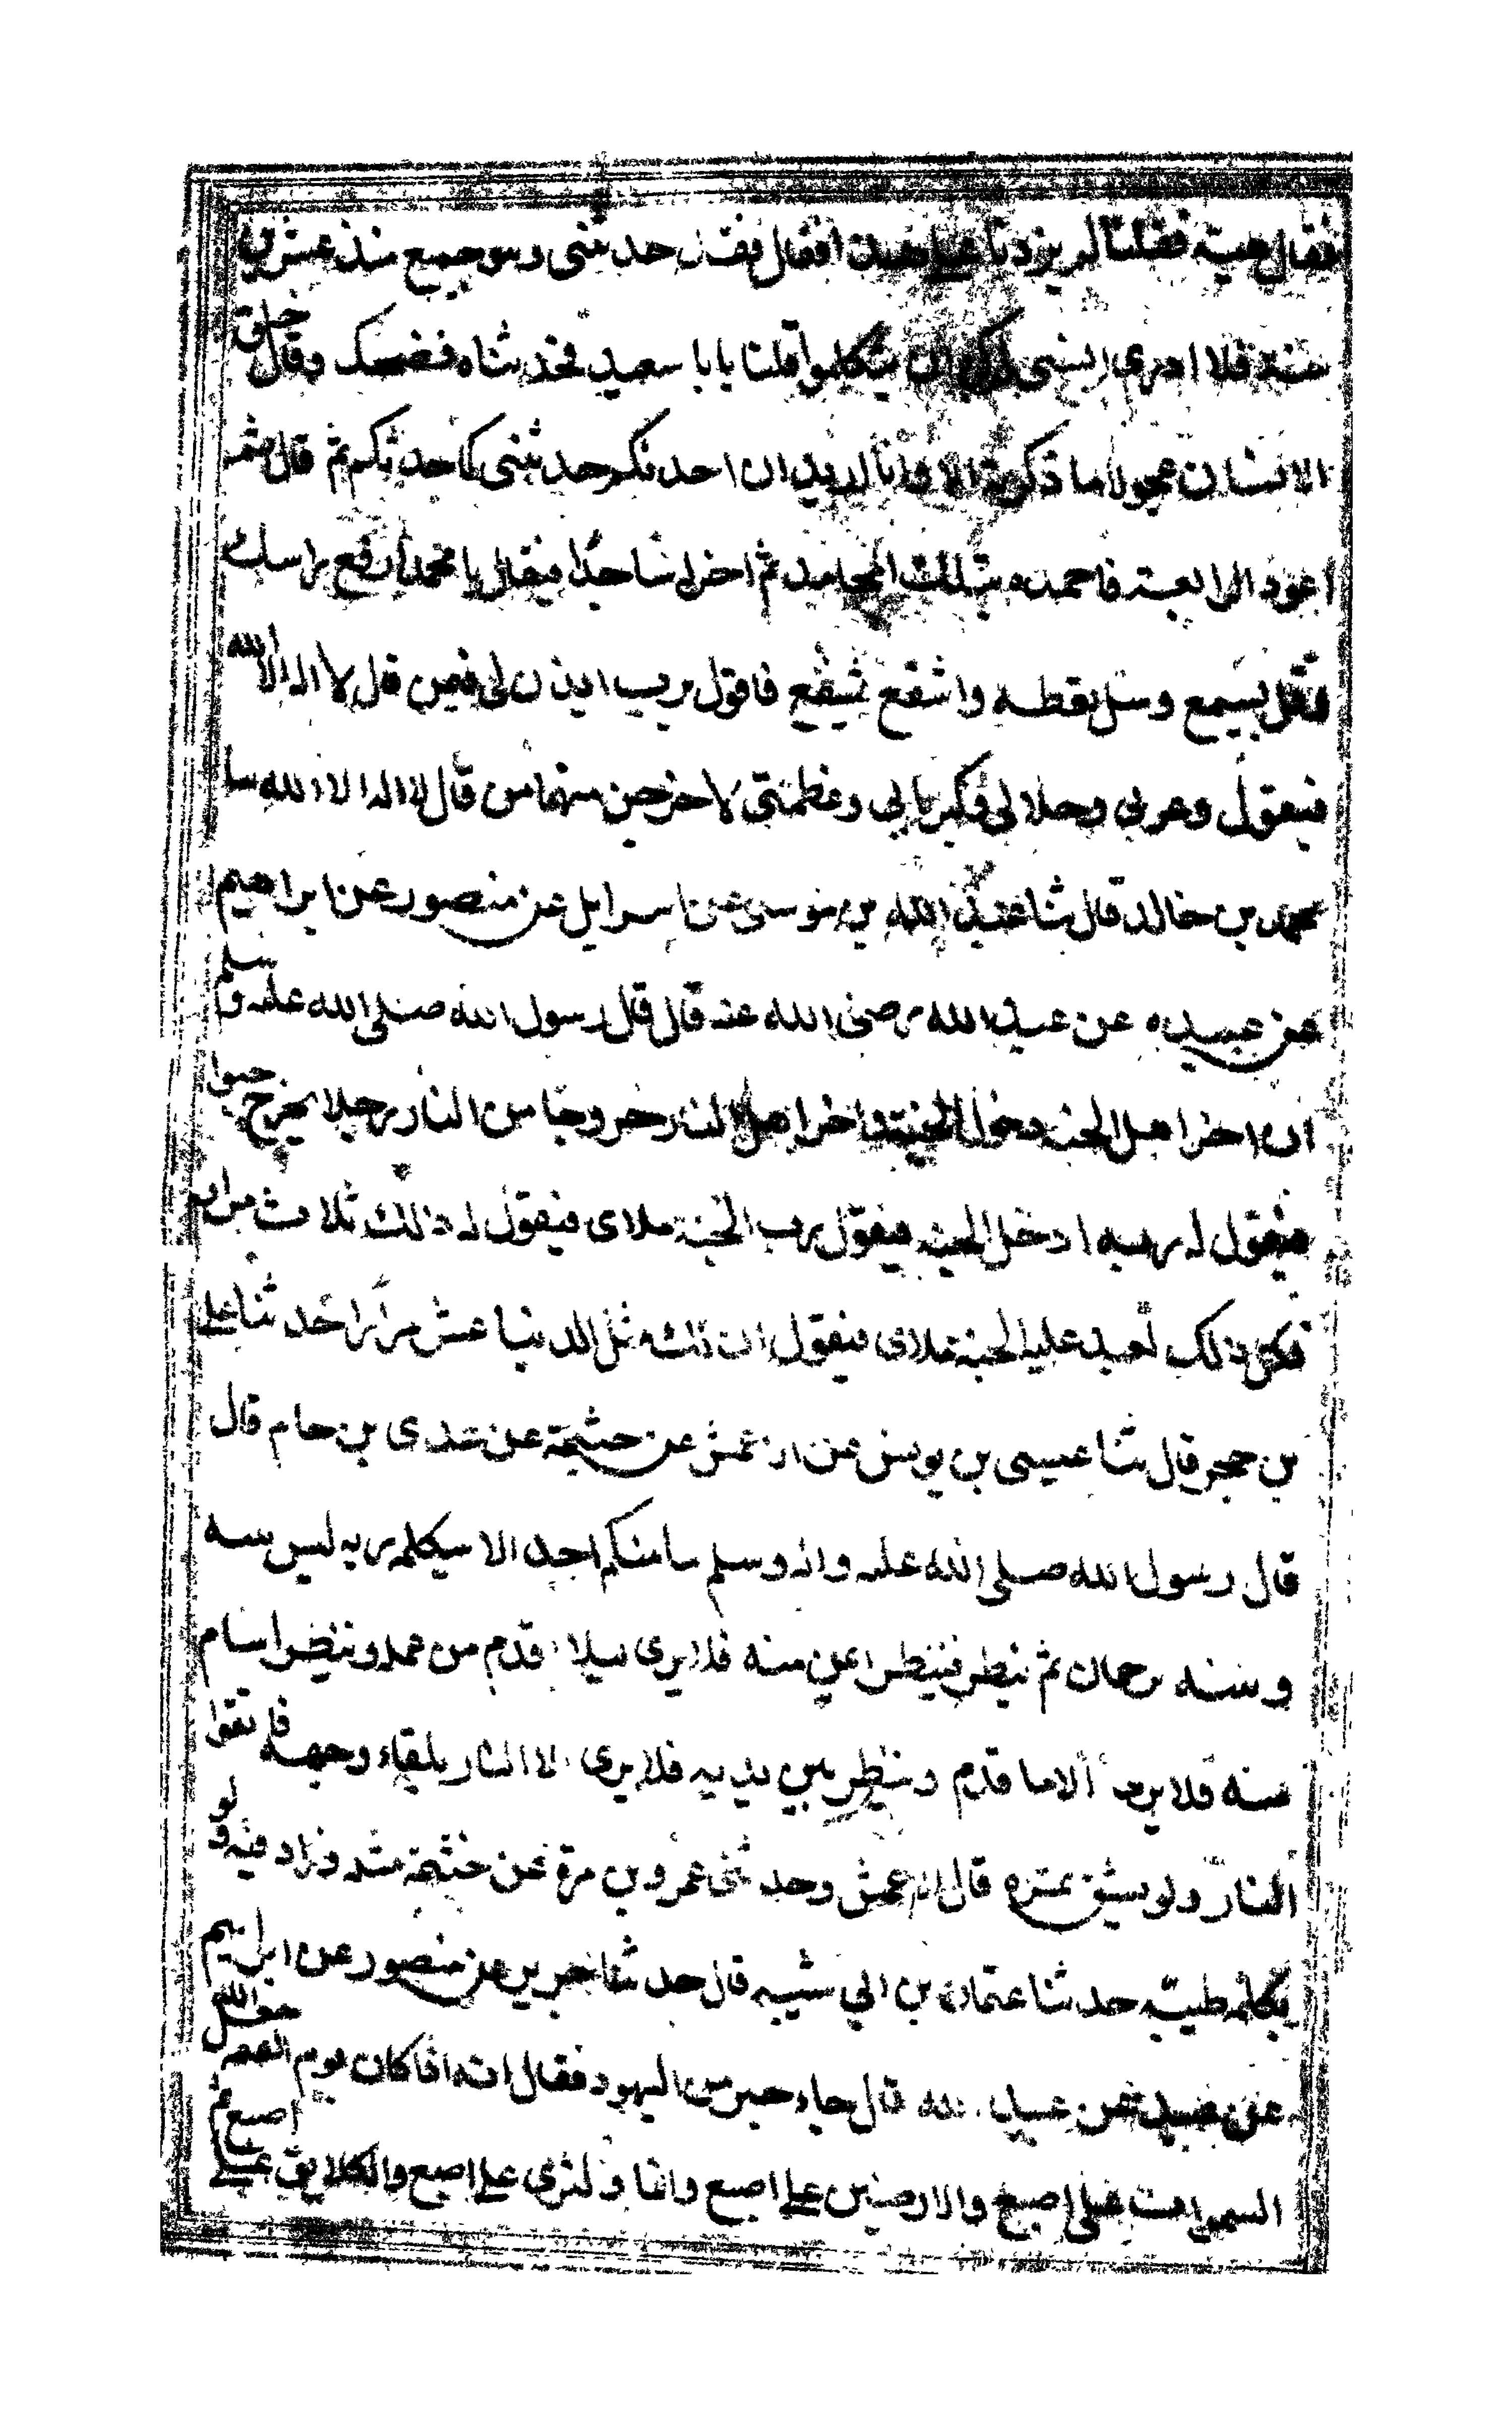 فقال هيه فقلنا لم يزدنا على هذا فقال لقد حدثنى وهو جميع منذ عشرين
سنة فلا ادرى انسى ام كره ان تتكلموا قلنا يابا سعيد فحدثناه فضحك وقال خلق
الانسان عجولا ما ذكرته الا وانا اريد ان احدثكم حدثنى كما حدثكم ثم قال ثم
اعود الرابعة فاحمده بتلك المحامد ثم اخر له ساجدا فيقال يا محمد ارفع راسك
وقل يسمع وسل تعطه واشفع تشفع فاقول يرب ايذن لى فيمن قال لا اله الا الله
فيقول وعزتى وجلالى وكبريايى وعظمتى لاخرجن منها من قال لا اله الا الله سا
محمد بن خالد قال ثنا عبيد الله بن موسى عن اسرايل عن منصور عن ابراهيم
عن عبيده عن عبد الله رضى الله عنه قال قال رسول الله صلى الله عليه وسلم
ان اخر اهل الجنه دخولا الجنة واخر اهل النار خروجا من النار رجلا يخرج حبوا
فيقول له ربه ادخل الجنه فيقول رب الجنه ملاى فيقول له ذلك ثلاث مرات
فكل ذلك يعيد عليه الجنه ملاى فيقول ان لك مثل الدنيا عشر مرار احدثنا على
بن حجر قال ثنا عيسى بن يونس عن الاعمش عن خيثمة عن عدى بن حاتم قال
قال رسول الله صلى الله عليه واله وسلم ما منكم احد الا سيكلمه ربه ليس بينه
وبينه ترجمان ثم ينظر فينظر ايمن منه فلا يرى الا ما قدم من عمله وينظر اشام
منه فلا يرى الا ما قدم وينظر بين يديه فلا يرى الا النار تلقاء وجهه فاتقوا
النار ولو بشق تمرة قال الاعمش وحدثنى عمرو بن مرة عن خيثمة مثله وزاد فيه ولو
بكلمة طيبه حدثنا عثمان بن ابي شيبه قال حدثنا جرير عن منصور عن ابراهيم
عن عبيدة عن عبد الله قال جاء حبر من اليهود فقال انه اذا كان يوم القيمه جعل الله
السموات على اصبع والارضين على اصبع والما والثرى على اصبع والخلايق على اصبع ثم